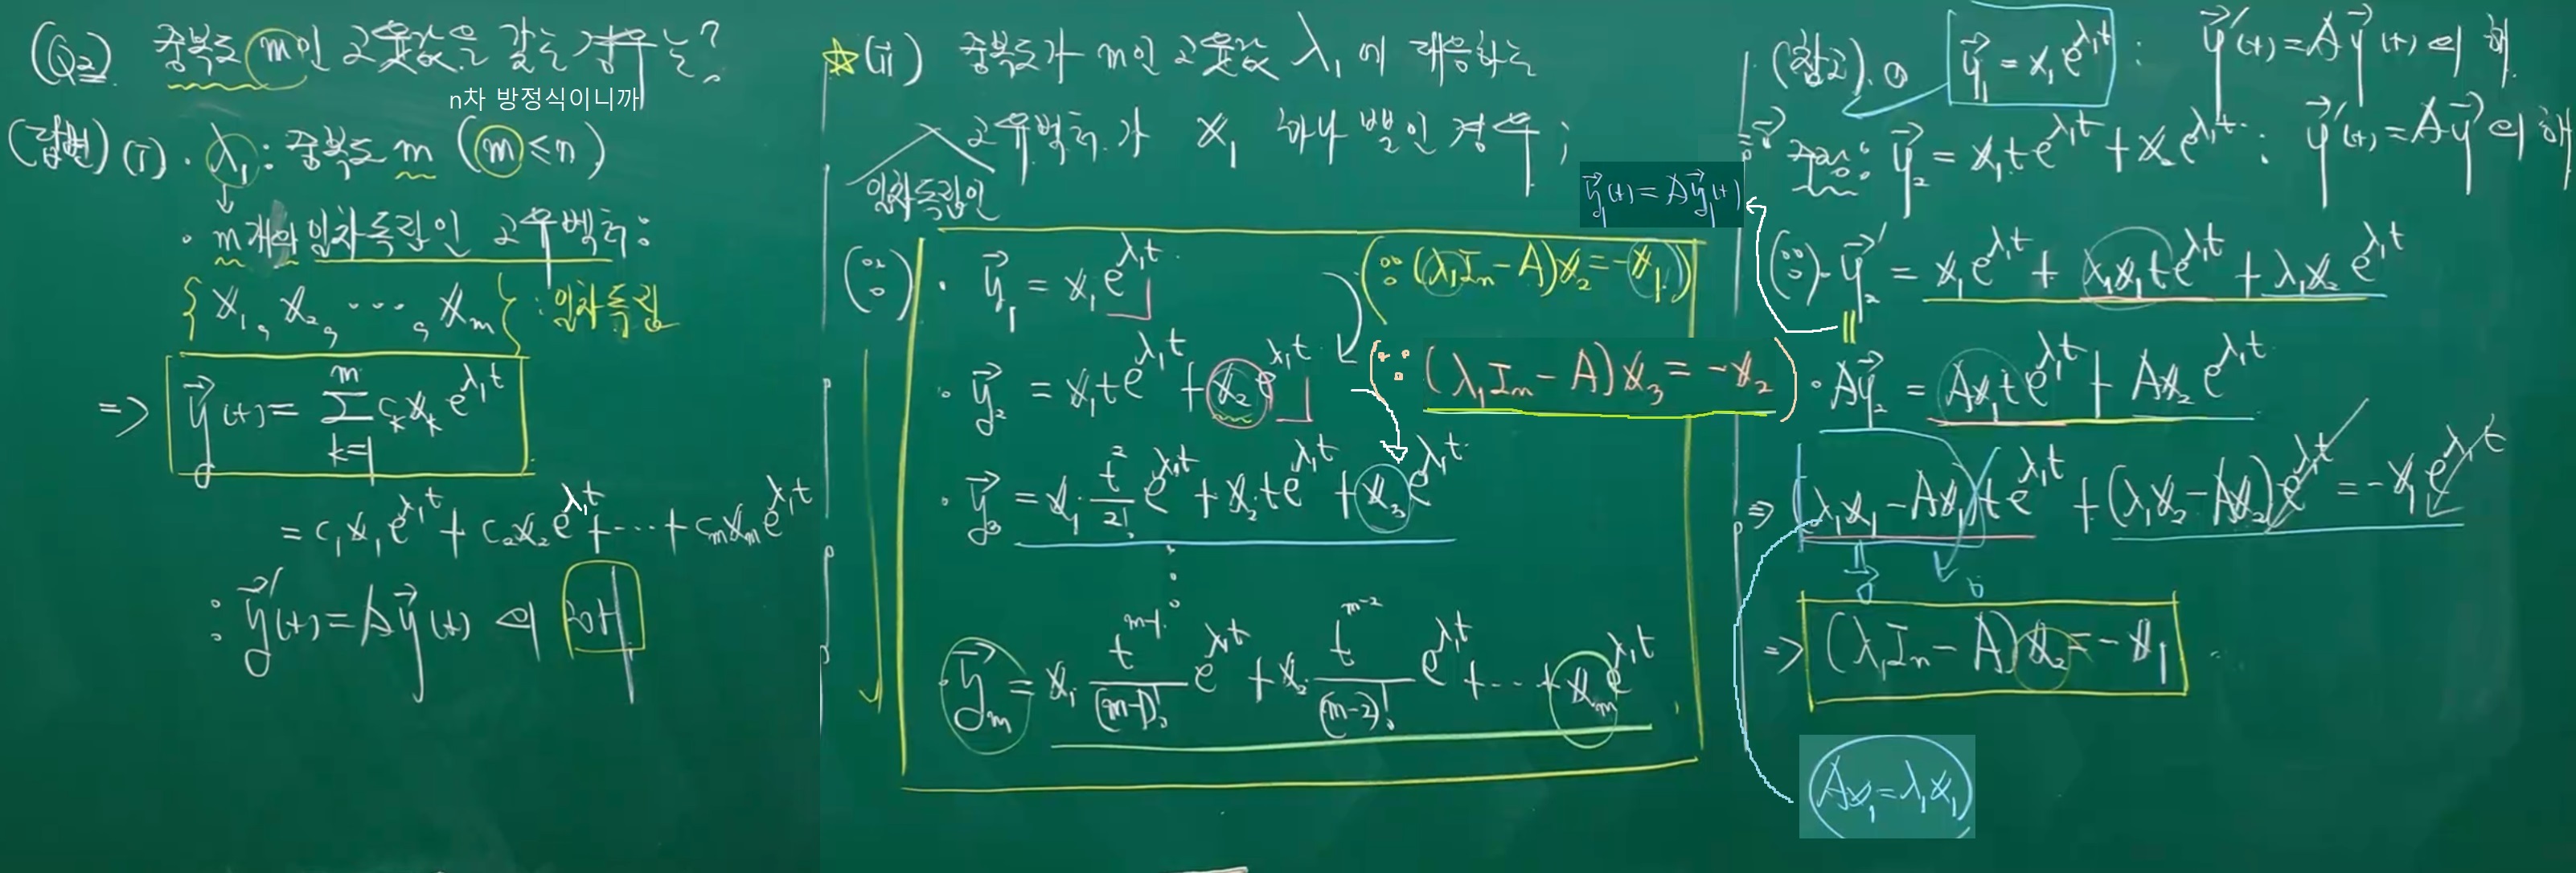 (Q2) 중복도 m인 고윳값을 갖는 경우는?
n차 방정식이니까
(답변) (i) · λ₁ : 중복도 m (m ≤ n)
· m개의 일차독립인 고유벡터 :
{ x₁, x₂, ···, xₘ } : 일차독립
=> y⃗(t) = Σ_{k=1}^{m} cₖxₖ e^{λ₁t}
= c₁x₁e^{λ₁t} + c₂x₂e^{λ₁t} + ··· + cₘxₘe^{λ₁t}
: y⃗'(t) = Ay⃗(t) 의 해
☆(ii) 중복도가 m인 고윳값 λ₁에 대응하는
고유벡터가 x₁ 하나 뿐인 경우 ;
일차독립인
y⃗₁(t) = Ay⃗₁(t)
(∵) · y⃗₁ = x₁e^{λ₁t} (∵ (λ₁Iₙ − A)x₂ = −x₁)
· y⃗₂ = x₁te^{λ₁t} + x₂e^{λ₁t} (∵ (λ₁Iₘ − A)x₃ = −x₂)
· y⃗₃ = x₁ · t²/2! e^{λ₁t} + x₂ · te^{λ₁t} + x₃e^{λ₁t}
⋮
· y⃗ₘ = x₁ · t^{m-1}/(m-1)! e^{λ₁t} + x₂ · t^{m-2}/(m-2)! e^{λ₁t} + ··· + xₘe^{λ₁t}
(참고). ① y⃗₁ = x₁e^{λ₁t} : y⃗'(t) = Ay⃗(t) 의 해
y⃗₂ = x₁te^{λ₁t} + x₂e^{λ₁t} : y⃗'(t) = Ay⃗ 의 해
(∵) · y⃗₂' = x₁e^{λ₁t} + λ₁x₁te^{λ₁t} + λ₁x₂e^{λ₁t}
||
· Ay⃗₂ = Ax₁te^{λ₁t} + Ax₂e^{λ₁t}
=> (λ₁x₁ − Ax₁)te^{λ₁t} + (λ₁x₂ − Ax₂)e^{λ₁t} = −x₁e^{λ₁t}
|| 0⃗ 0
=> (λ₁Iₙ − A)x₂ = −x₁
Ax₁ = λ₁x₁